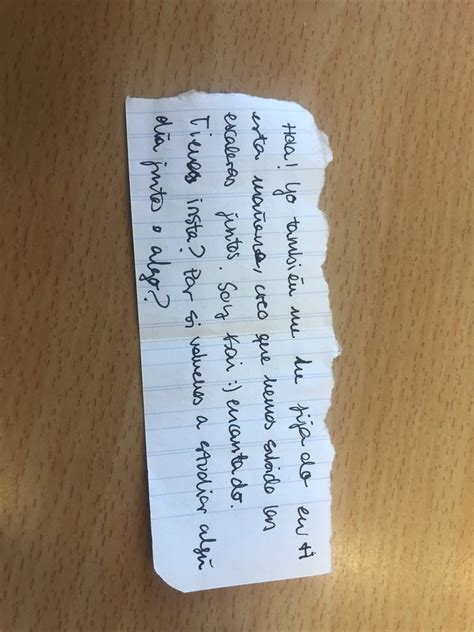 Hola! Yo también me he fijado en ti
esta mañana, creo que hemos subido las
escaleras juntos. Soy Kai :) encantado.
Tienes insta? Por si volvemos a estudiar algún
día juntos o algo?